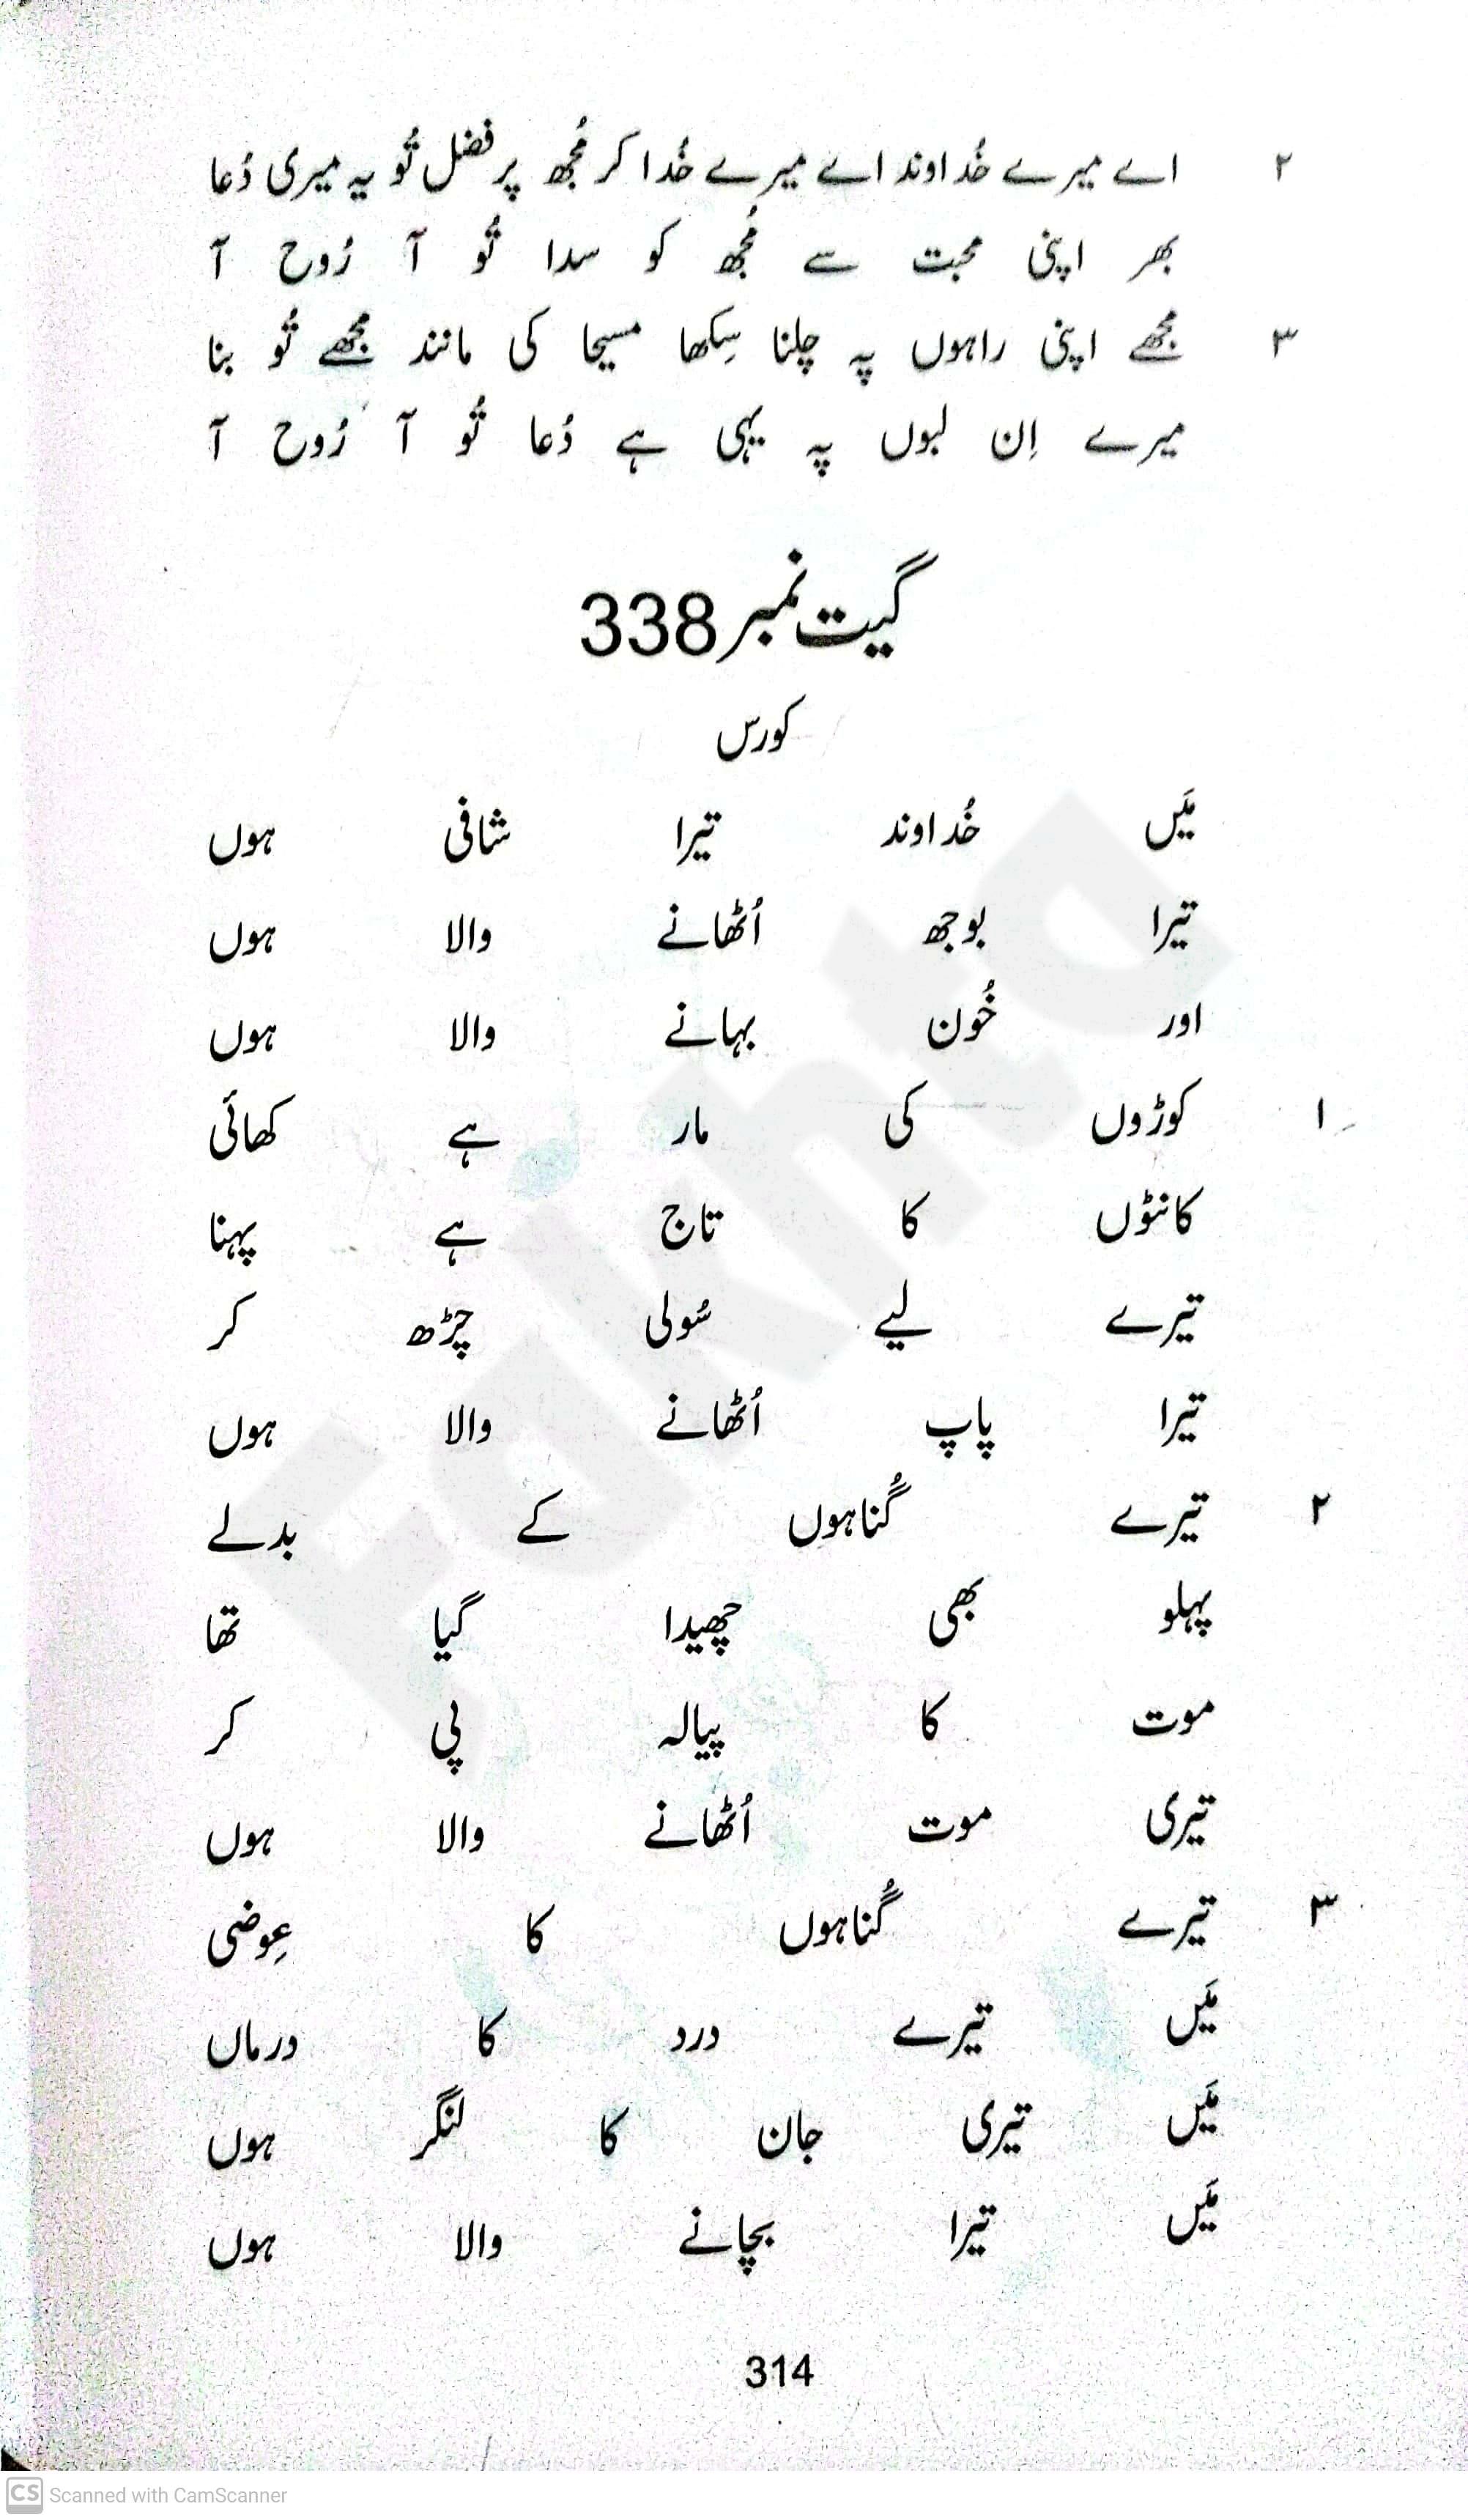 ۲ اے میرے خُداوند اے میرے خُدا کر مُجھ پر فضل تُو یہ میری دُعا
بھر اپنی محبت سے مُجھ کو سدا تُو آ رُوح آ
۳ مجھے اپنی راہوں پہ چلنا سِکھا مسیحا کی مانند مجھے تُو بنا
میرے اِن لبوں پہ یہی ہے دُعا تُو آ رُوح آ
گیت نمبر 338
کورس
مَیں خُداوند تیرا شافی ہوں
تیرا بوجھ اُٹھانے والا ہوں
اور خُون بہانے والا ہوں
۱ کوڑوں کی مار ہے کھائی
کانٹوں کا تاج ہے پہنا
تیرے لیے سُولی چڑھ کر
تیرا پاپ اُٹھانے والا ہوں
۲ تیرے گُناہوں کے بدلے
پہلو بھی چھیدا گیا تھا
موت کا پیالہ پی کر
تیری موت اُٹھانے والا ہوں
۳ تیرے گُناہوں کا عِوضی
مَیں تیرے درد کا درماں
مَیں تیری جان کا لنگر ہوں
مَیں تیرا بچانے والا ہوں
314
Fakhta
CS Scanned with CamScanner